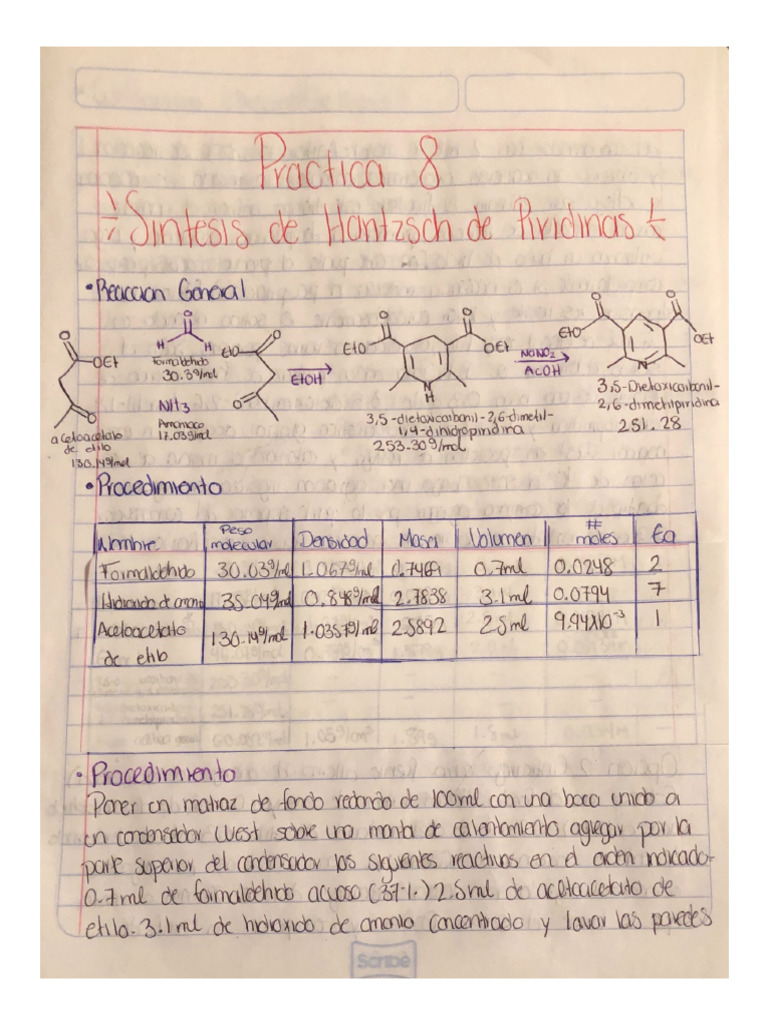 Practica 8
Sintesis de Hantzsch de Piridinas
• Reaccion General
O
O
O
O
O
O
O
OEt
H H
EtO
EtO
OEt
EtO
OEt
Formaldehido
30.3g/ml
EtOH
NaNO2
AcOH
O
O
NH3
N
H
N
Amoniaco
17.039/ml
acetoacetato
de etilo
130.14g/mol
3,5-dietoxicarbonil-2,6-dimetil-
1,4-dihidropiridina
253.30g/mol
3,5-Dietoxicarbonil-
2,6-dimetilpiridina
251.28
• Procedimiento
Nombre Peso molecular Densidad Masa Volumen # moles Eq
Formaldehido 30.03g/ml 1.067g/ml 0.7469 0.7ml 0.0248 2
Hidroxido de amonio 35.04g/ml 0.848g/ml 2.7838 3.1ml 0.0794 7
Acetoacetato de etilo 130.14g/ml 1.0357g/ml 2.5892 2.5ml 9.94x10-3 1
• Procedimiento
Poner en matraz de fondo redondo de 100ml con una boca unido a
un condensador West sobre una manta de calentamiento agregar por la
parte superior del condensador los siguientes reactivos en el orden indicado-
0.7ml de formaldehido acuoso (37%) 2.5ml de acetoacetato de
etilo. 3.1ml de hidroxido de amonio concentrado y lavar las paredes
Scribe